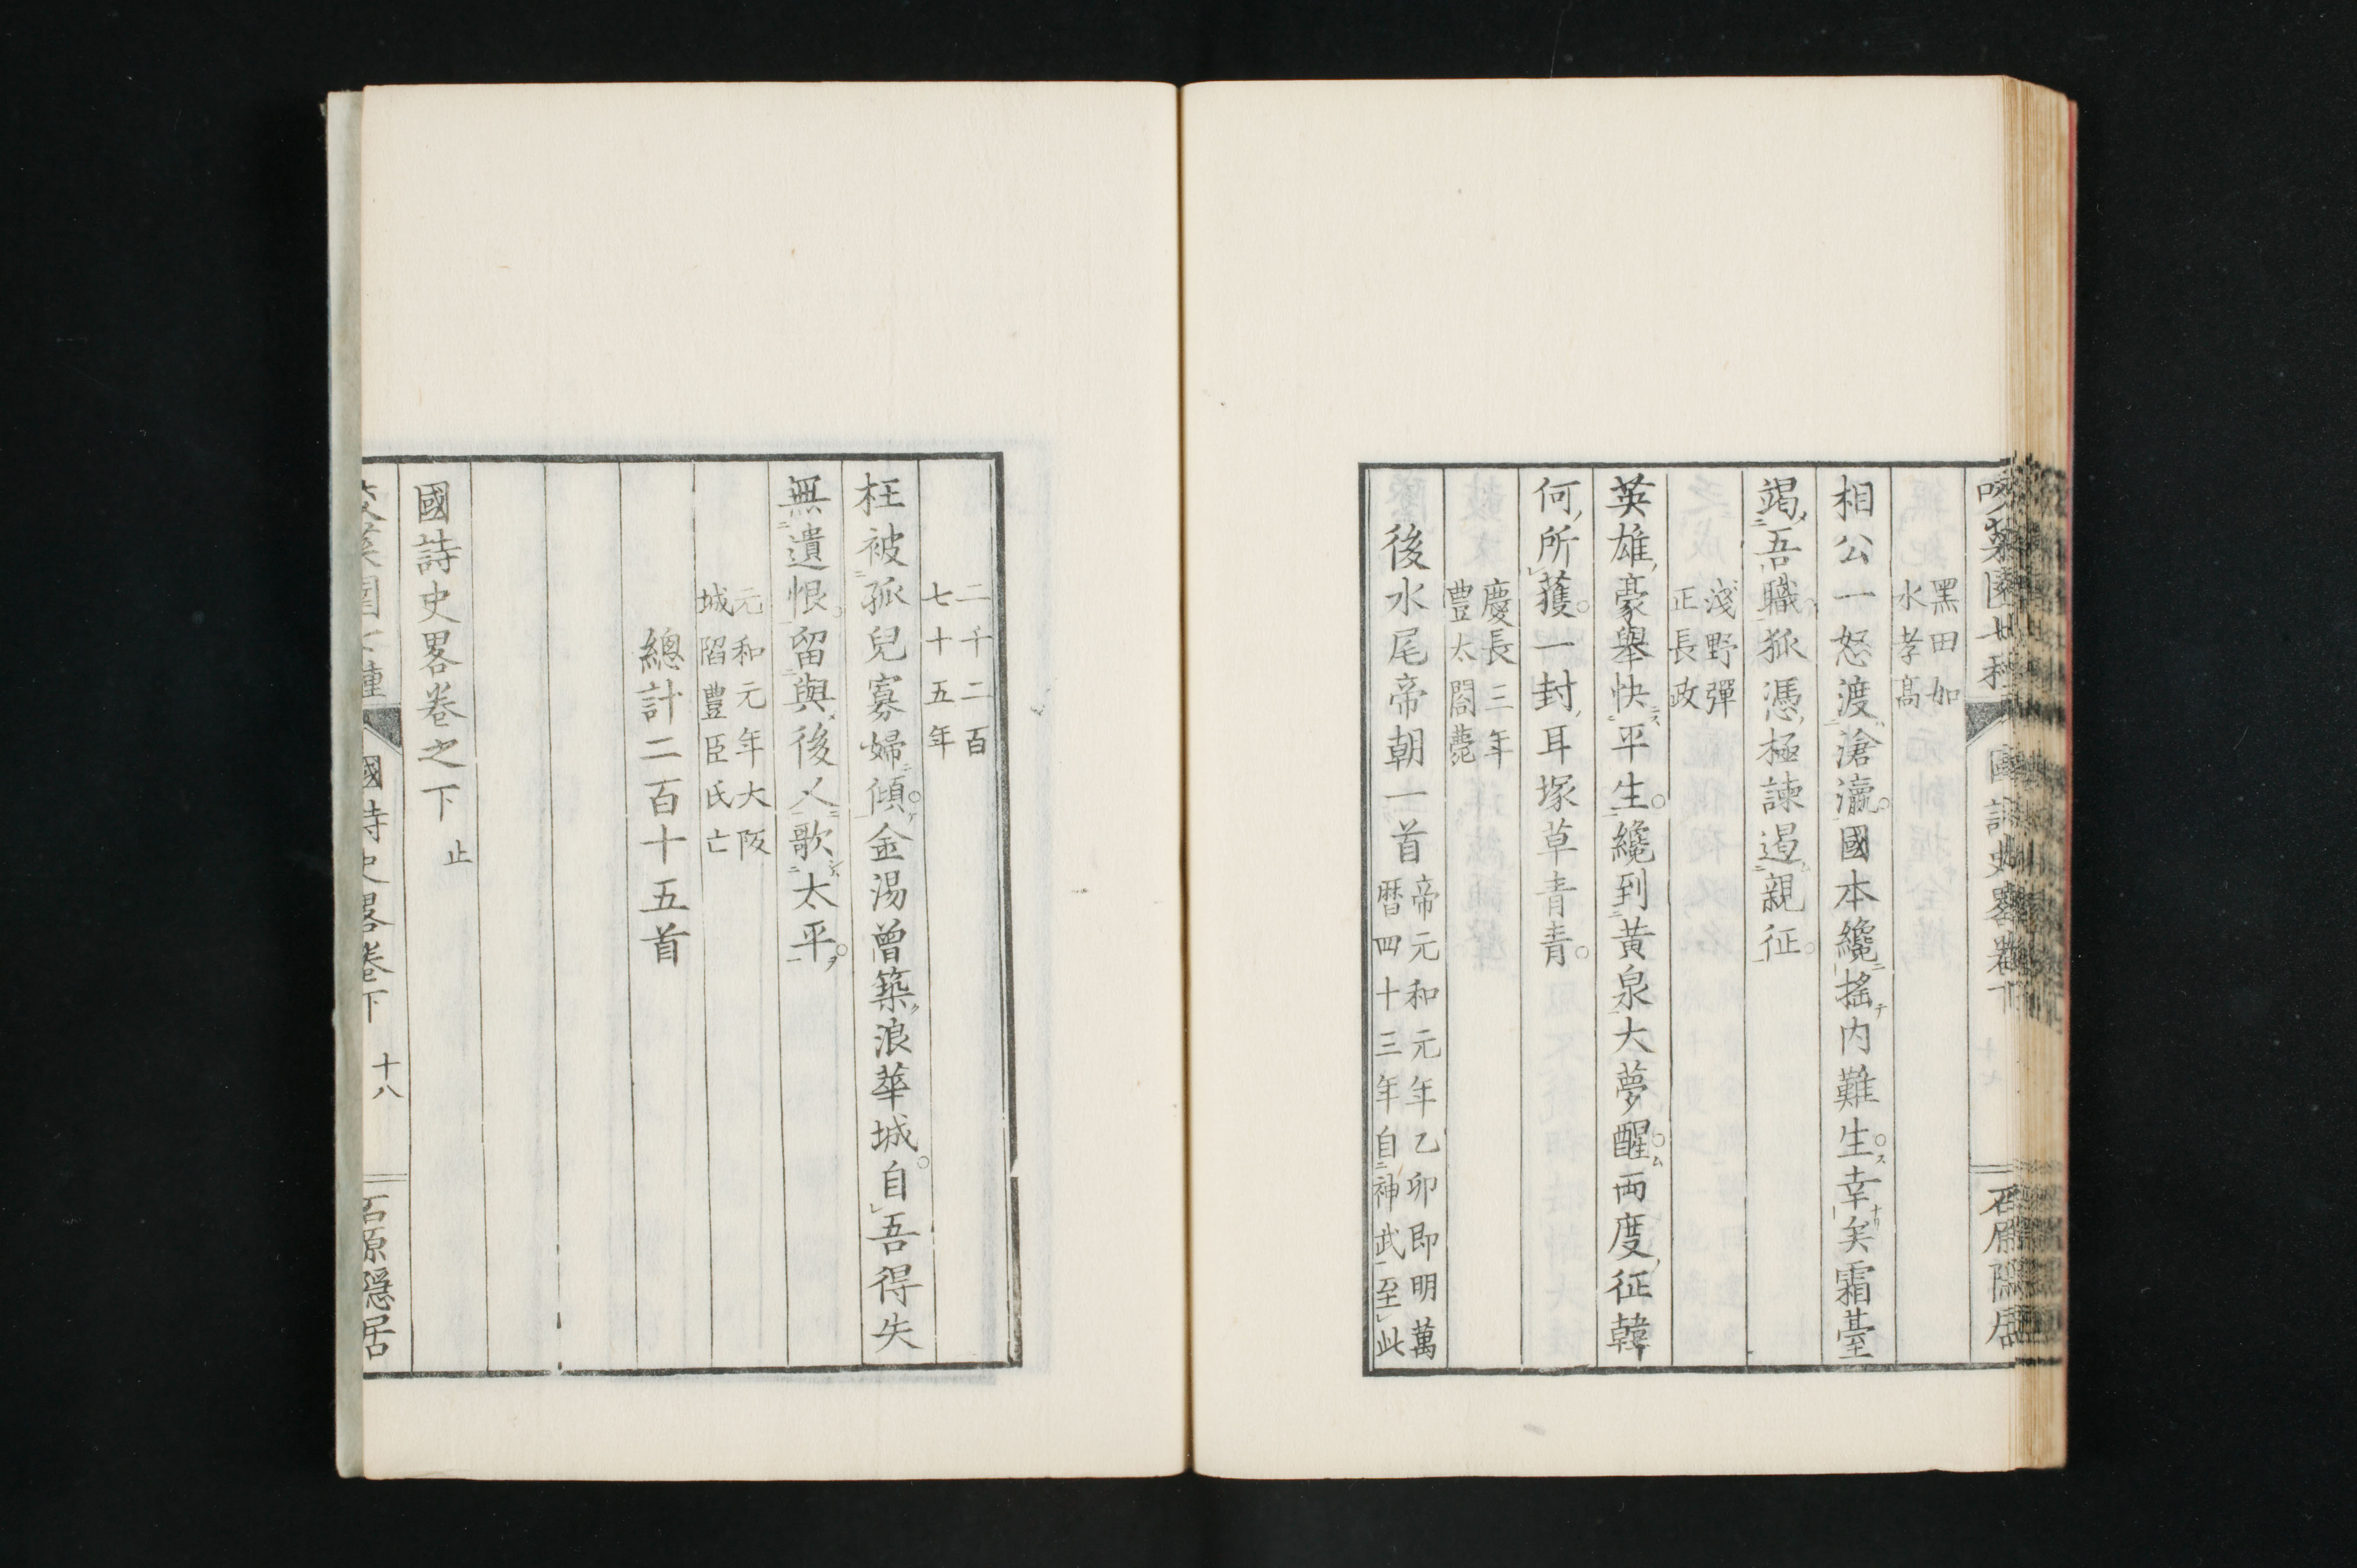 黑田如
水孝高
相公一怒渡滄瀛國本纔搖内難生幸矣霜臺
竭吾職狐憑極諫遏親征
淺野彈
正長政
英雄豪舉快平生纔到黃泉大夢醒両度征韓
何所獲一封耳塚草青青
慶長三年
豊太閤薨
後水尾帝朝一首
帝元和元年乙卯即明萬
暦四十三年自神武至此
二千二百
七十五年
枉被孤兒寡婦傾金湯曾築浪華城自吾得失
無遺恨留與後人歌太平
元和元年大阪
城陷豊臣氏亡
總計二百十五首
國詩史畧卷之下
止
國詩史畧卷下
十八
石原隱居